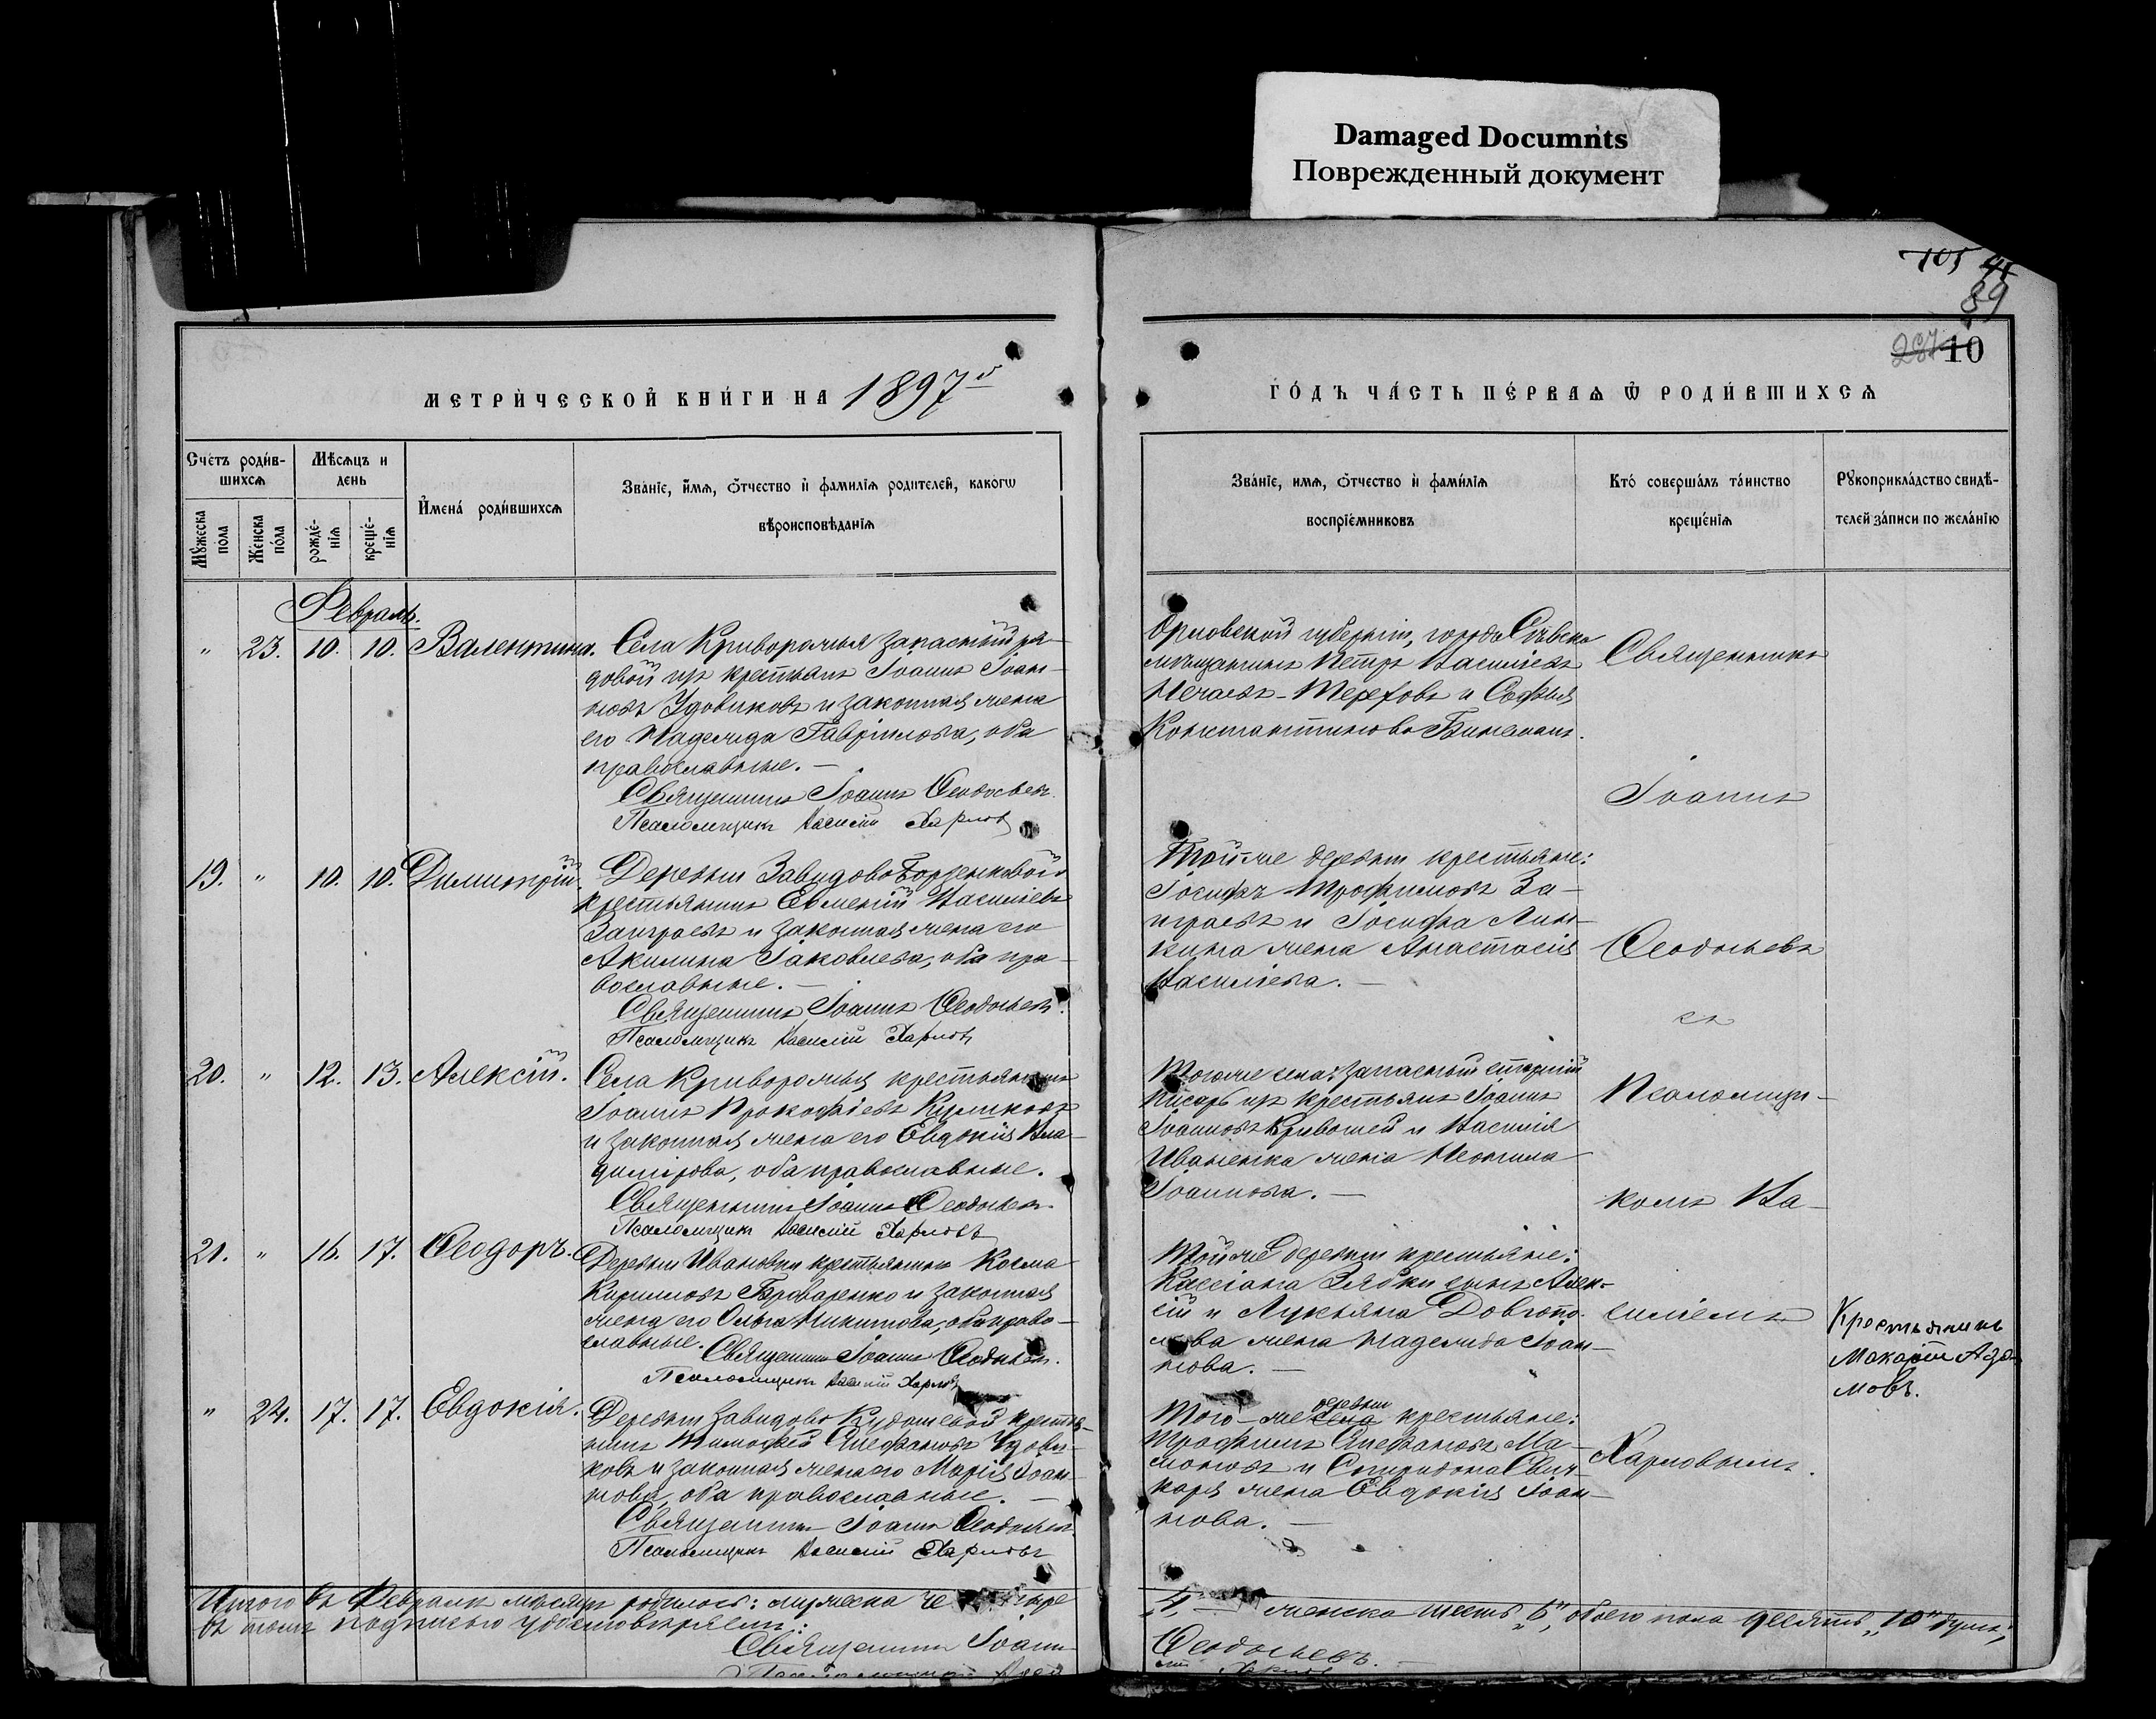 Damaged Documnts
Поврежденный документ
105
89
287 10
МЕТРИ́ЧЕСКОЙ КНИ́ГИ НА 1897
ГО́ДЪ ЧА́СТЬ ПЕ́РВАѦ Ѿ РОДИ́ВШИХСѦ
Сче́тъ роди́в-
шихсѧ
Мѣ́сѧцъ и
день
Мꙋ́жеска
пола
Же́нска
по́ла
рожде́-
нїѧ
креще́-
нїѧ
Имена́ роди́вшихсѧ
Зва́нїе, и́мѧ, ѻ́тчество и҆ фами́лїѧ роди́телей, како́гѡ
вѣроисповѣ́данїѧ
Зва́нїе, имѧ, ѻ́тчество и҆ фами́лїѧ
воспрїе́мниковъ
Кто́ соверша́лъ та́инство
креще́нїѧ
Рꙋкоприкла́дство свидѣ́-
телей за́писи по жела́нїю
Февраль.
" 23. 10. 10. Валентина. Села Криворожья запасный ря-
довой изъ крестьянъ Іоаннъ Іоан-
новъ Удовиковъ и законная жена
его Надежда Гавріилова, оба
православные. —
Священникъ Іоаннъ Ѳеодосьевъ
Псаломщикъ Василій Харловъ
Орловской губерніи, города Сѣвска
мѣщанинъ Петръ Васильевъ
Нечаевъ-Тереховъ и Софья
Константинова
Священникъ
Іоаннъ
19. " 10. 10. Димитрій. Деревни Завидово
крестьянинъ Евменій Василіевъ
Заиграевъ и законная жена его
Акилина Іаковлева, оба пра-
вославные. —
Священникъ Іоаннъ Ѳеодосьевъ.
Псаломщикъ Василій Харловъ
Той-же деревни крестьяне:
Іосифъ Трофимовъ За-
играевъ и Іосифа Лин-
кина жена Анастасія
Василіева. —
Ѳеодосьевъ
съ
20. " 12. 13. Алексій. Села Криворожья крестьянинъ
Іоаннъ Прокофіевъ
и законная жена его Евдокія Вла-
димірова, оба православные.
Священникъ Іоаннъ Ѳеодосьевъ
Псаломщикъ Василій Харловъ
Того-же села: запасный старшій
писарь изъ крестьянъ Іоаннъ
Іоанновъ Кривошей и Василія
Иваненка жена Неонила
Іоаннова. —
Псаломщи-
комъ Ва-
21. " 16. 17. Ѳеодоръ. Деревни Ивановки крестьянинъ Косма
Кирилловъ Броваренко и законная
жена его Ольга Никитова, оба право-
славные. Священникъ Іоаннъ Ѳеодосьевъ.
Псаломщикъ Василій Харловъ
Той-же деревни крестьяне:
Кассіана сынъ Алек-
сій и Лукьяна Довгопо-
лова жена Надежда Іоан-
нова. —
силіемъ
Крестьянинъ
Макарій Ада-
мовъ.
" 24. 17. 17. Евдокія. Деревни Завидово Кудашевой крестья-
нинъ Тимофей Стефановъ Удови-
ковъ и законная жена его Марія Іоан-
нова, оба православные. —
Священникъ Іоаннъ Ѳеодосьевъ.
Псаломщикъ Василій Харловъ
деревни
Того-же села крестьяне:
Трофимъ Стефановъ Ма-
моновъ и Спиридона Свин-
каря жена Евдокія Іоан-
нова. —
Харловымъ.
Итого въ Февралѣ мѣсяцѣ родилось: мужеска четыре
4, женска шесть „6", обоего пола десять „10" душъ,
въ томъ подписью удостовѣряемъ:
Священникъ Іоаннъ
Ѳеодосьевъ. —